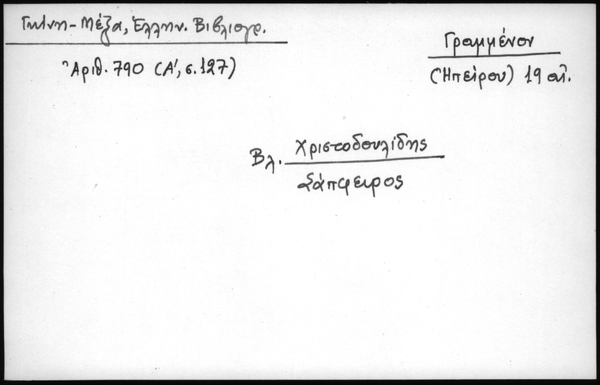 Γκίνη-Μέξα, Ἑλλην. Βιβλιογρ.
Ἀριθ. 790 (Α΄, σ. 127)
Γραμμένον
(Ἠπείρου) 19 αἰ.
Βλ. Χριστοδουλίδης
Σάπφειρος